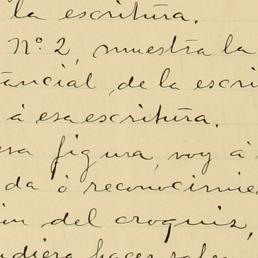 la escritura.
Nº 2, muestra la
tancial, de la escri
á esa escritura.
sa figura, voy á
da ó reconocimie
ion del croquis,
udiera hacer